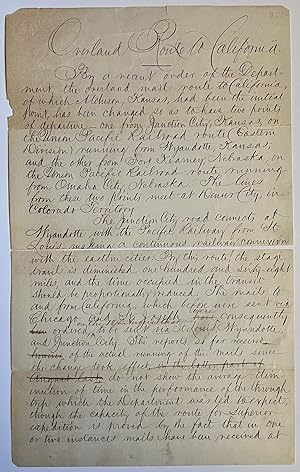 Overland Route to California.
By a recent order of the Depart-
ment, the overland mail route to California,
of which Atchison, Kansas, had been the initial
point, has been changed, so as to have two points
of departure - one from Junction City, Kansas, on
the Union Pacific Railroad route (Eastern
Division) running from Wyandotte, Kansas;
and the other from Fort Kearney, Nebraska, on
the Union Pacific Railroad route, running
from Omaha City, Nebraska. The lines
from these two points meet at Denver City, in
Colorado Territory.
The Junction City road connects at
Wyandotte with the Pacific Railway from St.
Louis, making a continuous railway connexion
with the eastern cities. By this route the stage
travel is diminished one hundred and sixty eight
miles and the time occupied in the transit
should be proportionally reduced. The mails to
and from California, which before were sent via
Chicago and St. Joseph, were consequently
ordered to be sent via St. Louis, Wyandotte,
and Junction City. The reports so far received
of the actual running of the mails since
the change took effect in the latter part of
August last, do not show the average dimi-
nution of time in the performance of the through
trip which the Department was led to expect,
though the capacity of the route for superior
expedition is proved by the fact that in one
or two instances mails have been received at